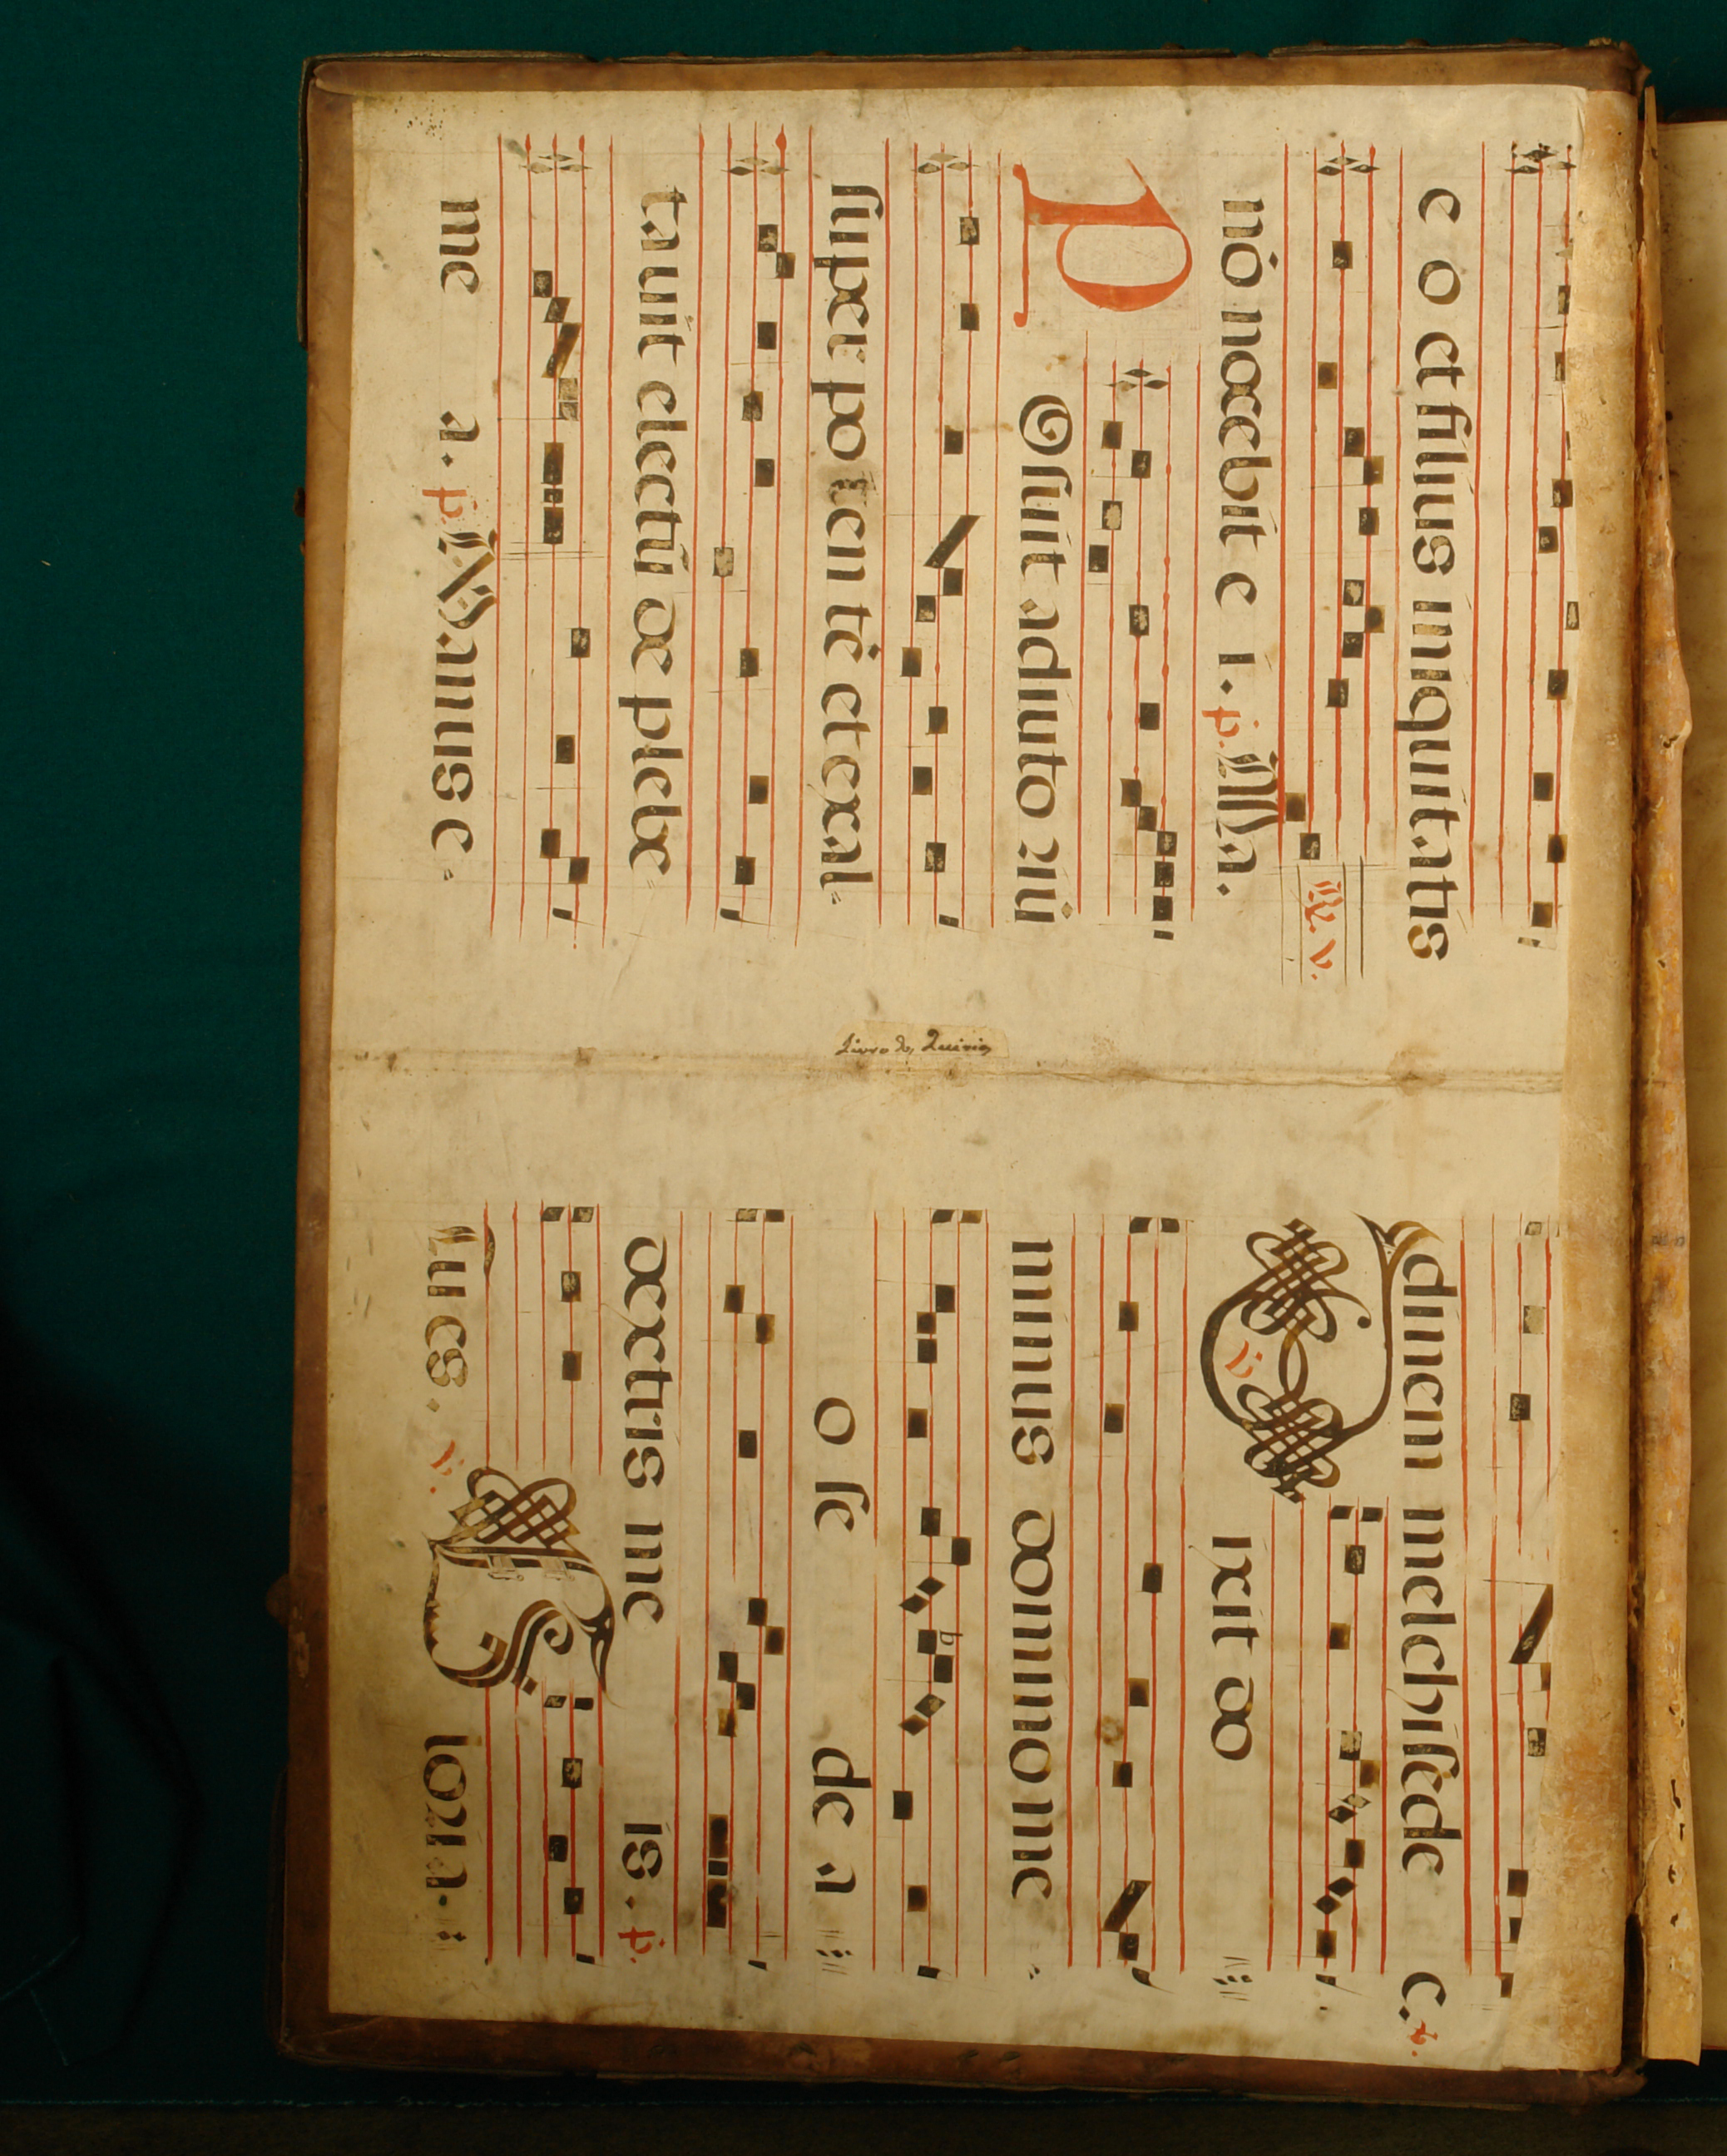 e o et filius iniquitatis
nō nocebit e i. p. Ma.
R v.
P Osuit adiuto riū
super po ten tē et exal-
tauit electū de plebe-
me a. p. Manus e-
Livro dos Quirios
dinem melchisede c. p.
D v. ixit do
minus domino me-
o se de a
dextris me is. p.
Tu es. v. G loria.